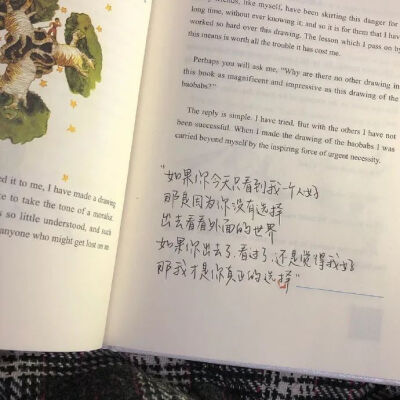 ed it to me, I have made a drawing
e to take the tone of a moralist.
s so little understood, and such
anyone who might get lost on an
friends, like myself, have been skirting this danger for
long time, without ever knowing it; and so it is for them that I have
worked so hard over this drawing. The lesson which I pass on by
this means is worth all the trouble it has cost me.
Perhaps you will ask me, "Why are there no other drawing in
this book as magnificent and impressive as this drawing of the
baobabs?"
The reply is simple. I have tried. But with the others I have not
been successful. When I made the drawing of the baobabs I was
carried beyond myself by the inspiring force of urgent necessity.
"如果你今天只看到我一个人好
那是因为你没有选择
出去看看外面的世界
如果你出去了,看过了,还是觉得我好
那我才是你真正的选择"